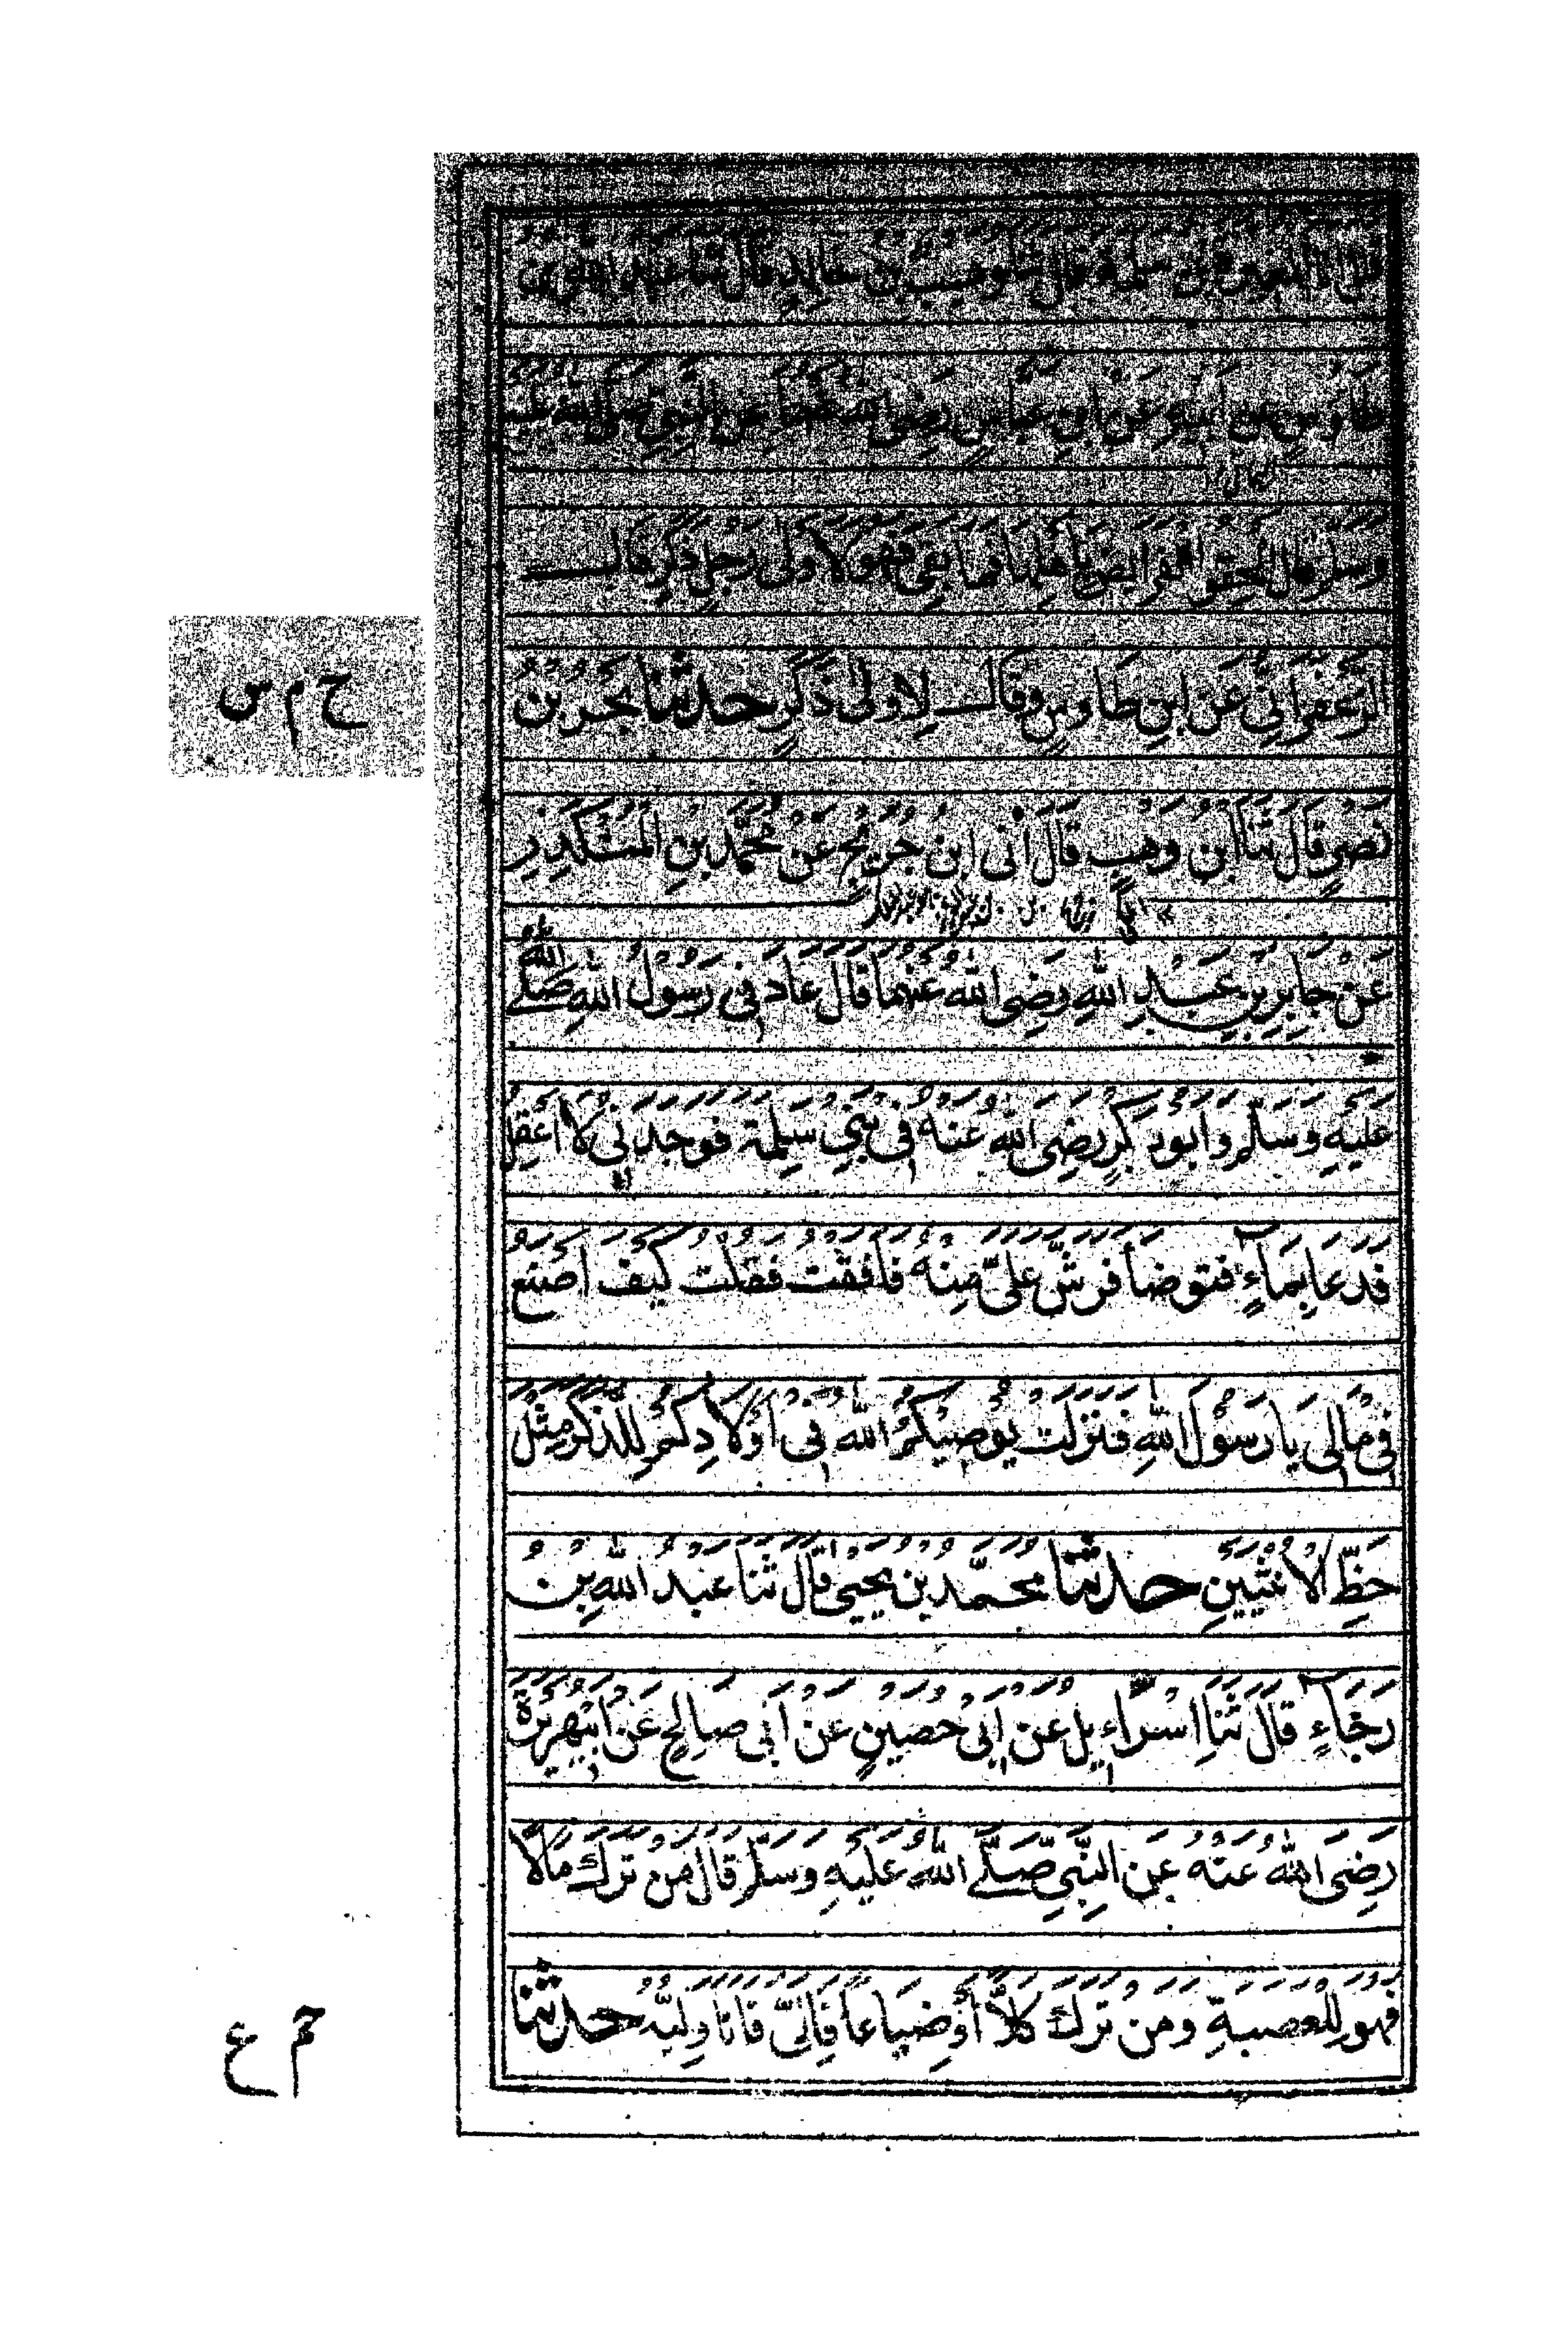 قال ثنا المغيرة بن سلمة قال ثنا وهيب بن خالد قال ثنا عبد الله بن
طاوسٍ عن أبيه عن ابن عباسٍ رضي الله عنهما عن النبي صلى الله عليه
وسلم قال الحقوا الفرايض باهلها فما بقي فهو لاولى رجلٍ ذكرٍ قال
الزعفراني عن ابن طاوسٍ وقال لاولى ذكرٍ حدثنا بحر بن
ح م س
نصرٍ قال ثنا ابن وهبٍ قال أنى ابن جريجٍ عن محمد بن المنكدر
عن جابر بن عبد الله رضي الله عنهما قال عادني رسول الله صلى الله
عليه وسلم وأبو بكرٍ رضي الله عنه في بني سلمة فوجدني لا أعقل
فدعا بماءٍ فتوضأ فرش علىّ منه فأفقت فقلت كيف أصنع
في مالي يا رسول الله فنزلت يوصيكم الله في أولادكم للذكر مثل
حظّ الانثيين حدثنا محمد بن يحيى قال ثنا عبد الله بن
رجاءٍ قال ثنا اسراءيل عن ابى حصينٍ عن أبى صالحٍ عن ابيهريرة
رضي الله عنه عن النبي صلى الله عليه وسلم قال من ترك مالا
فهو للعصبة ومن ترك كلّا أو ضياعا فإنىّ فأنا وليه حدثنا
خم ع